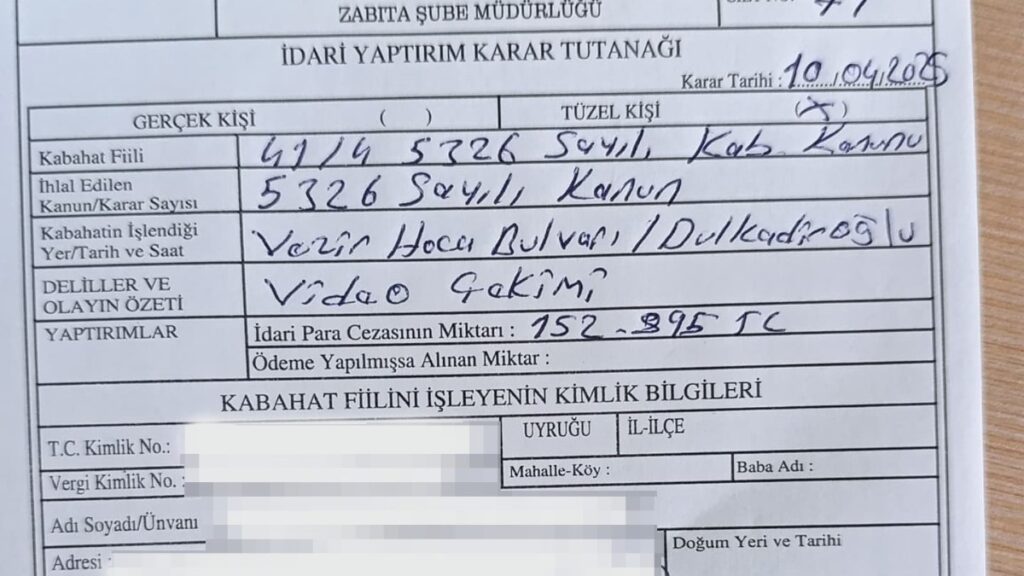 ZABITA ŞUBE MÜDÜRLÜĞÜ
İDARİ YAPTIRIM KARAR TUTANAĞI
Karar Tarihi : 10.04.2025
GERÇEK KİŞİ ( ) TÜZEL KİŞİ (X)
Kabahat Fiili 41/4 5326 Sayılı Kab. Kanunu
İhlal Edilen
Kanun/Karar Sayısı 5326 Sayılı Kanun
Kabahatin İşlendiği
Yer/Tarih ve Saat Vezir Hoca Bulvarı / Dulkadiroğlu
DELİLLER VE
OLAYIN ÖZETİ Video Çekimi
YAPTIRIMLAR İdari Para Cezasının Miktarı : 152.895 TL
Ödeme Yapılmışsa Alınan Miktar :
KABAHAT FİİLİNİ İŞLEYENİN KİMLİK BİLGİLERİ
T.C. Kimlik No.: UYRUĞU İL-İLÇE
Vergi Kimlik No. : Mahalle-Köy : Baba Adı :
Adı Soyadı/Ünvanı
Adresi : Doğum Yeri ve Tarihi